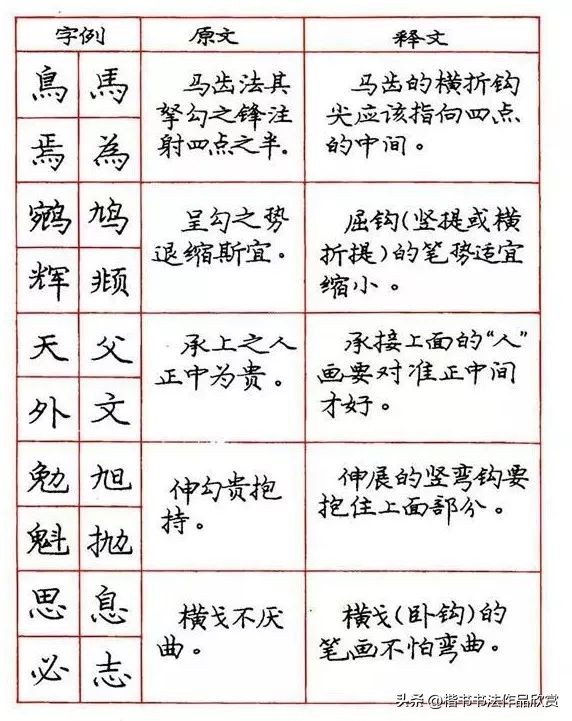 字例 原文 释文
鳥 馬
焉 為
马齿法其
拏勾之锋注
射四点之半.
马齿的横折钩
尖应该指向四点
的中间。
鹓 鸠
辉 𫖯
呈勾之势
退缩斯宜。
屈钩(竖提或横
折提)的笔势适宜
缩小。
天 父
外 文
承上之人
正中为贵。
承接上面的“人”
画要对准正中间
才好。
勉 旭
魁 抛
伸勾贵抱
持。
伸展的竖弯钩要
抱住上面部分。
思 息
必 志
横戈不厌
曲。
横戈(卧钩)的
笔画不怕弯曲。
头条@楷书书法作品欣赏